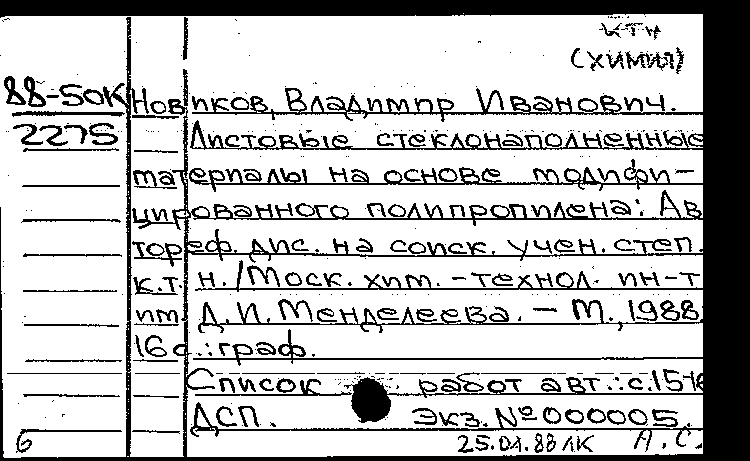 ктн
(химия)
88-50К Новиков, Владимир Иванович.
2275 Листовые стеклонаполненные
материалы на основе модифи-
цированного полипропилена: Ав
тореф. дис. на соиск. учен. степ.
к.т.н. /Моск. хим.-технол. ин-т
им. Д.И. Менделеева. – М., 1988.
16с.: граф.
Список работ авт.: с.15-16
ДСП. Экз. №000005.
6 25.04.88 ЛК А.С.